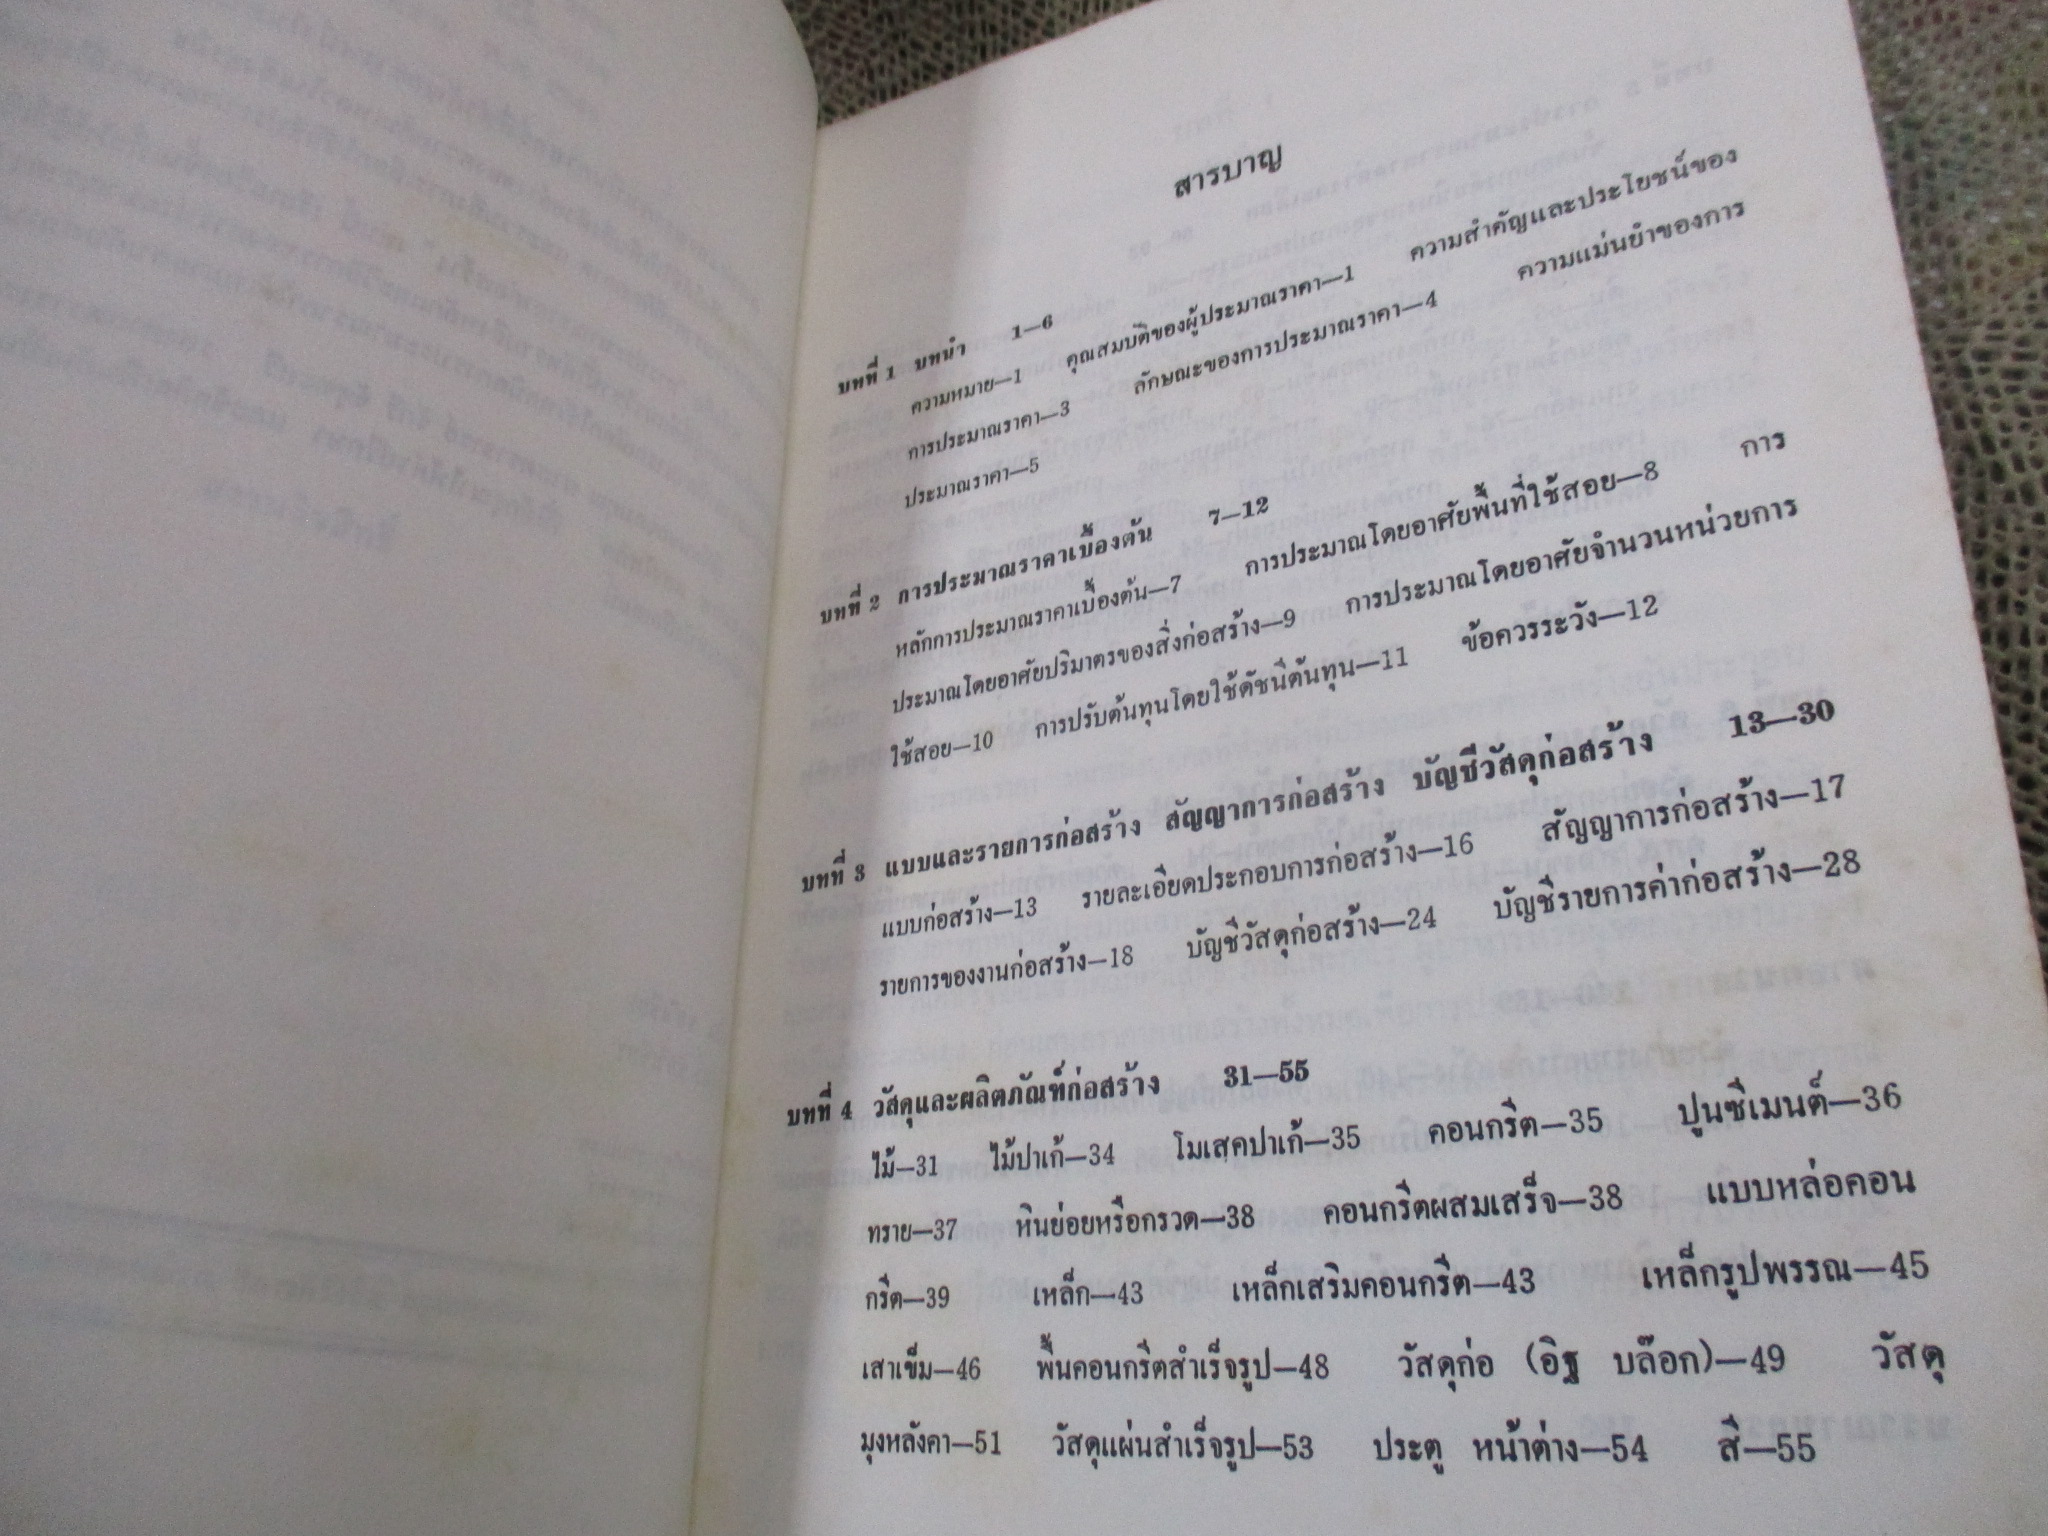 สารบาญ
บทที่ 1 บทนำ 1—6
ความหมาย—1 คุณสมบัติของผู้ประมาณราคา—1 ความสำคัญและประโยชน์ของ
การประมาณราคา—3 ลักษณะของการประมาณราคา—4 ความแม่นยำของการ
ประมาณราคา—5
บทที่ 2 การประมาณราคาเบื้องต้น 7—12
หลักการประมาณราคาเบื้องต้น—7 การประมาณโดยอาศัยพื้นที่ใช้สอย—8 การ
ประมาณโดยอาศัยปริมาตรของสิ่งก่อสร้าง—9 การประมาณโดยอาศัยจำนวนหน่วยการ
ใช้สอย—10 การปรับต้นทุนโดยใช้ดัชนีต้นทุน—11 ข้อควรระวัง—12
บทที่ 3 แบบและรายการก่อสร้าง สัญญาการก่อสร้าง บัญชีวัสดุก่อสร้าง 13—30
แบบก่อสร้าง—13 รายละเอียดประกอบการก่อสร้าง—16 สัญญาการก่อสร้าง—17
รายการของงานก่อสร้าง—18 บัญชีวัสดุก่อสร้าง—24 บัญชีรายการค่าก่อสร้าง—28
บทที่ 4 วัสดุและผลิตภัณฑ์ก่อสร้าง 31—55
ไม้—31 ไม้ปาเก้—34 โมเสคปาเก้—35 คอนกรีต—35 ปูนซีเมนต์—36
ทราย—37 หินย่อยหรือกรวด—38 คอนกรีตผสมเสร็จ—38 แบบหล่อคอน
กรีต—39 เหล็ก—43 เหล็กเสริมคอนกรีต—43 เหล็กรูปพรรณ—45
เสาเข็ม—46 พื้นคอนกรีตสำเร็จรูป—48 วัสดุก่อ (อิฐ บล๊อก)—49 วัสดุ
มุงหลังคา—51 วัสดุแผ่นสำเร็จรูป—53 ประตู หน้าต่าง—54 สี—55